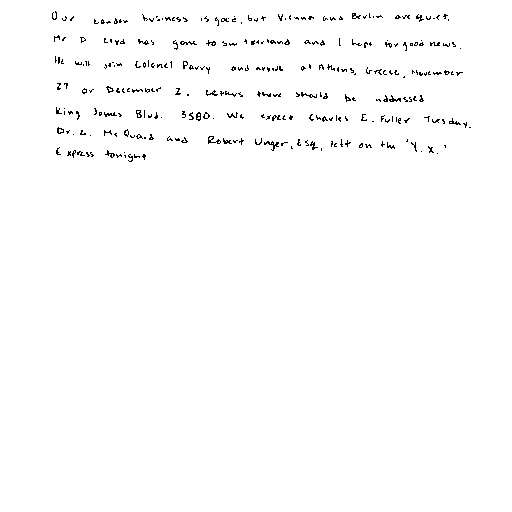 Our London business is good, but Vienna and Berlin are quiet.
Mr D Lloyd has gone to Switzerland and I hope for good news.
He will join Colonel Parry and arrive at Athens, Greece, November
27 or December 2. Letters there should be addressed
King James Blvd. 3580. We expect Charles E. Fuller Tuesday.
Dr. L. McQuaid and Robert Unger, Esq, left on the 'Y.X.'
Express tonight